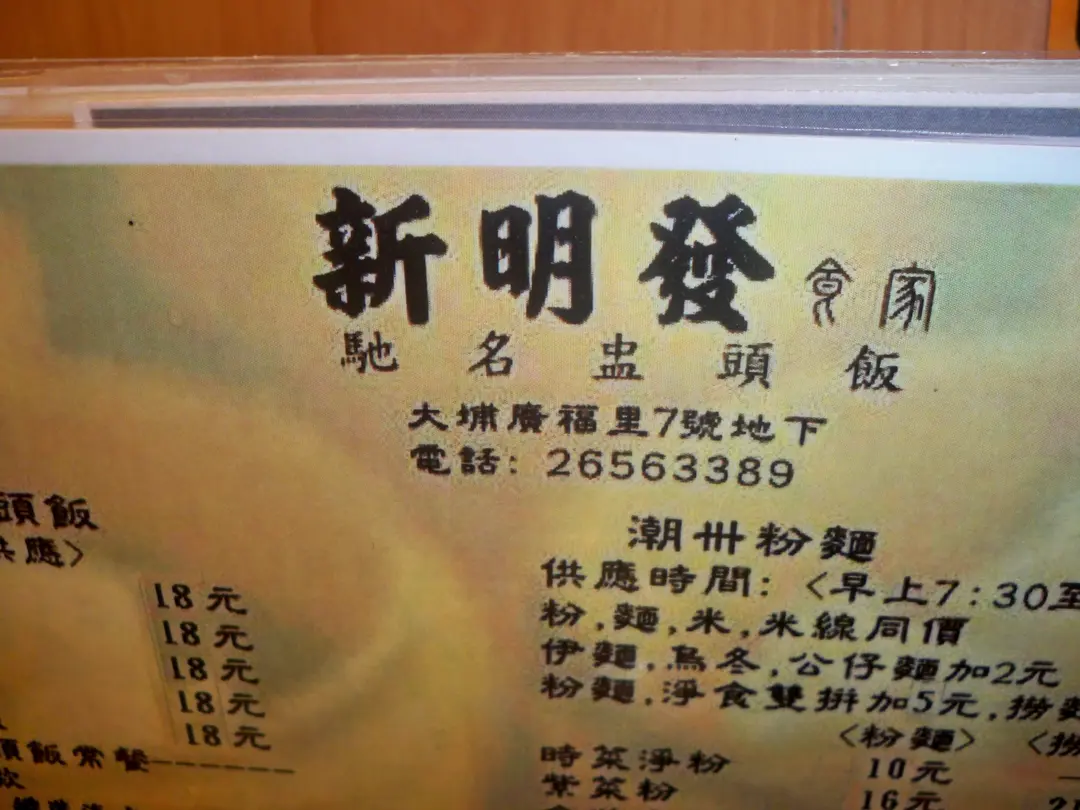 新明發食家
馳名盅頭飯
大埔廣福里7號地下
電話: 26563389
頭飯
供應〉
18元
18元
18元
18元
18元
頭飯常餐------
潮州粉麵
供應時間:〈早上7:30至
粉,麵,米,米線同價
伊麵,烏冬,公仔麵加2元
粉麵,淨食雙拼加5元,撈麵
〈粉麵〉 〈撈
時菜淨粉 10元
紫菜粉 16元